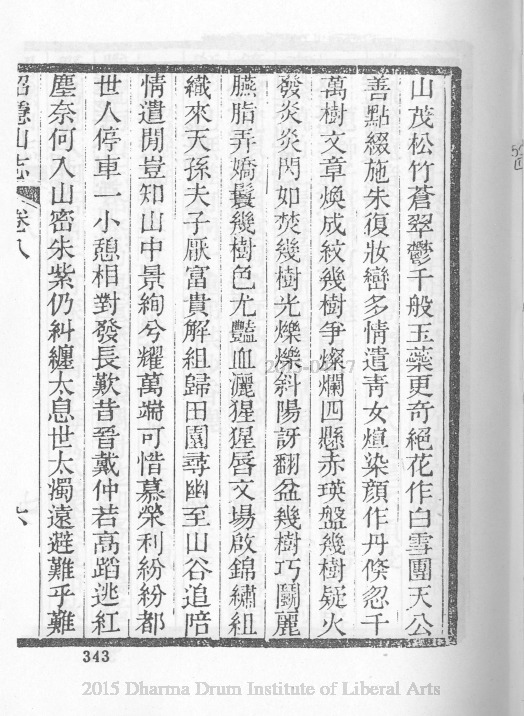 山茂松竹蒼翠鬱千般玉蘂更奇絕花作白雪團天公
善點綴施朱復妝巒多情遣青女煊染顏作丹倐忽千
萬樹文章煥成紋幾樹爭燦爛四懸赤瑛盤幾樹疑火
發炎炎閃如焚幾樹光爍爍斜陽訝翻盆幾樹巧鬬麗
臙脂弄嬌鬟幾樹色尤豔血灑猩猩唇文場啟錦繡組
織來天孫夫子厭富貴解組歸田園尋幽至山谷追陪
情遣閒豈知山中景絢兮耀萬端可惜慕榮利紛紛都
世人停車一小憩相對發長歎昔晉戴仲若高蹈逃紅
塵奈何入山密朱紫仍糾纏太息世太濁遠避難乎難
招隱山志 卷八 六
343
2015 Dharma Drum Institute of Liberal Arts